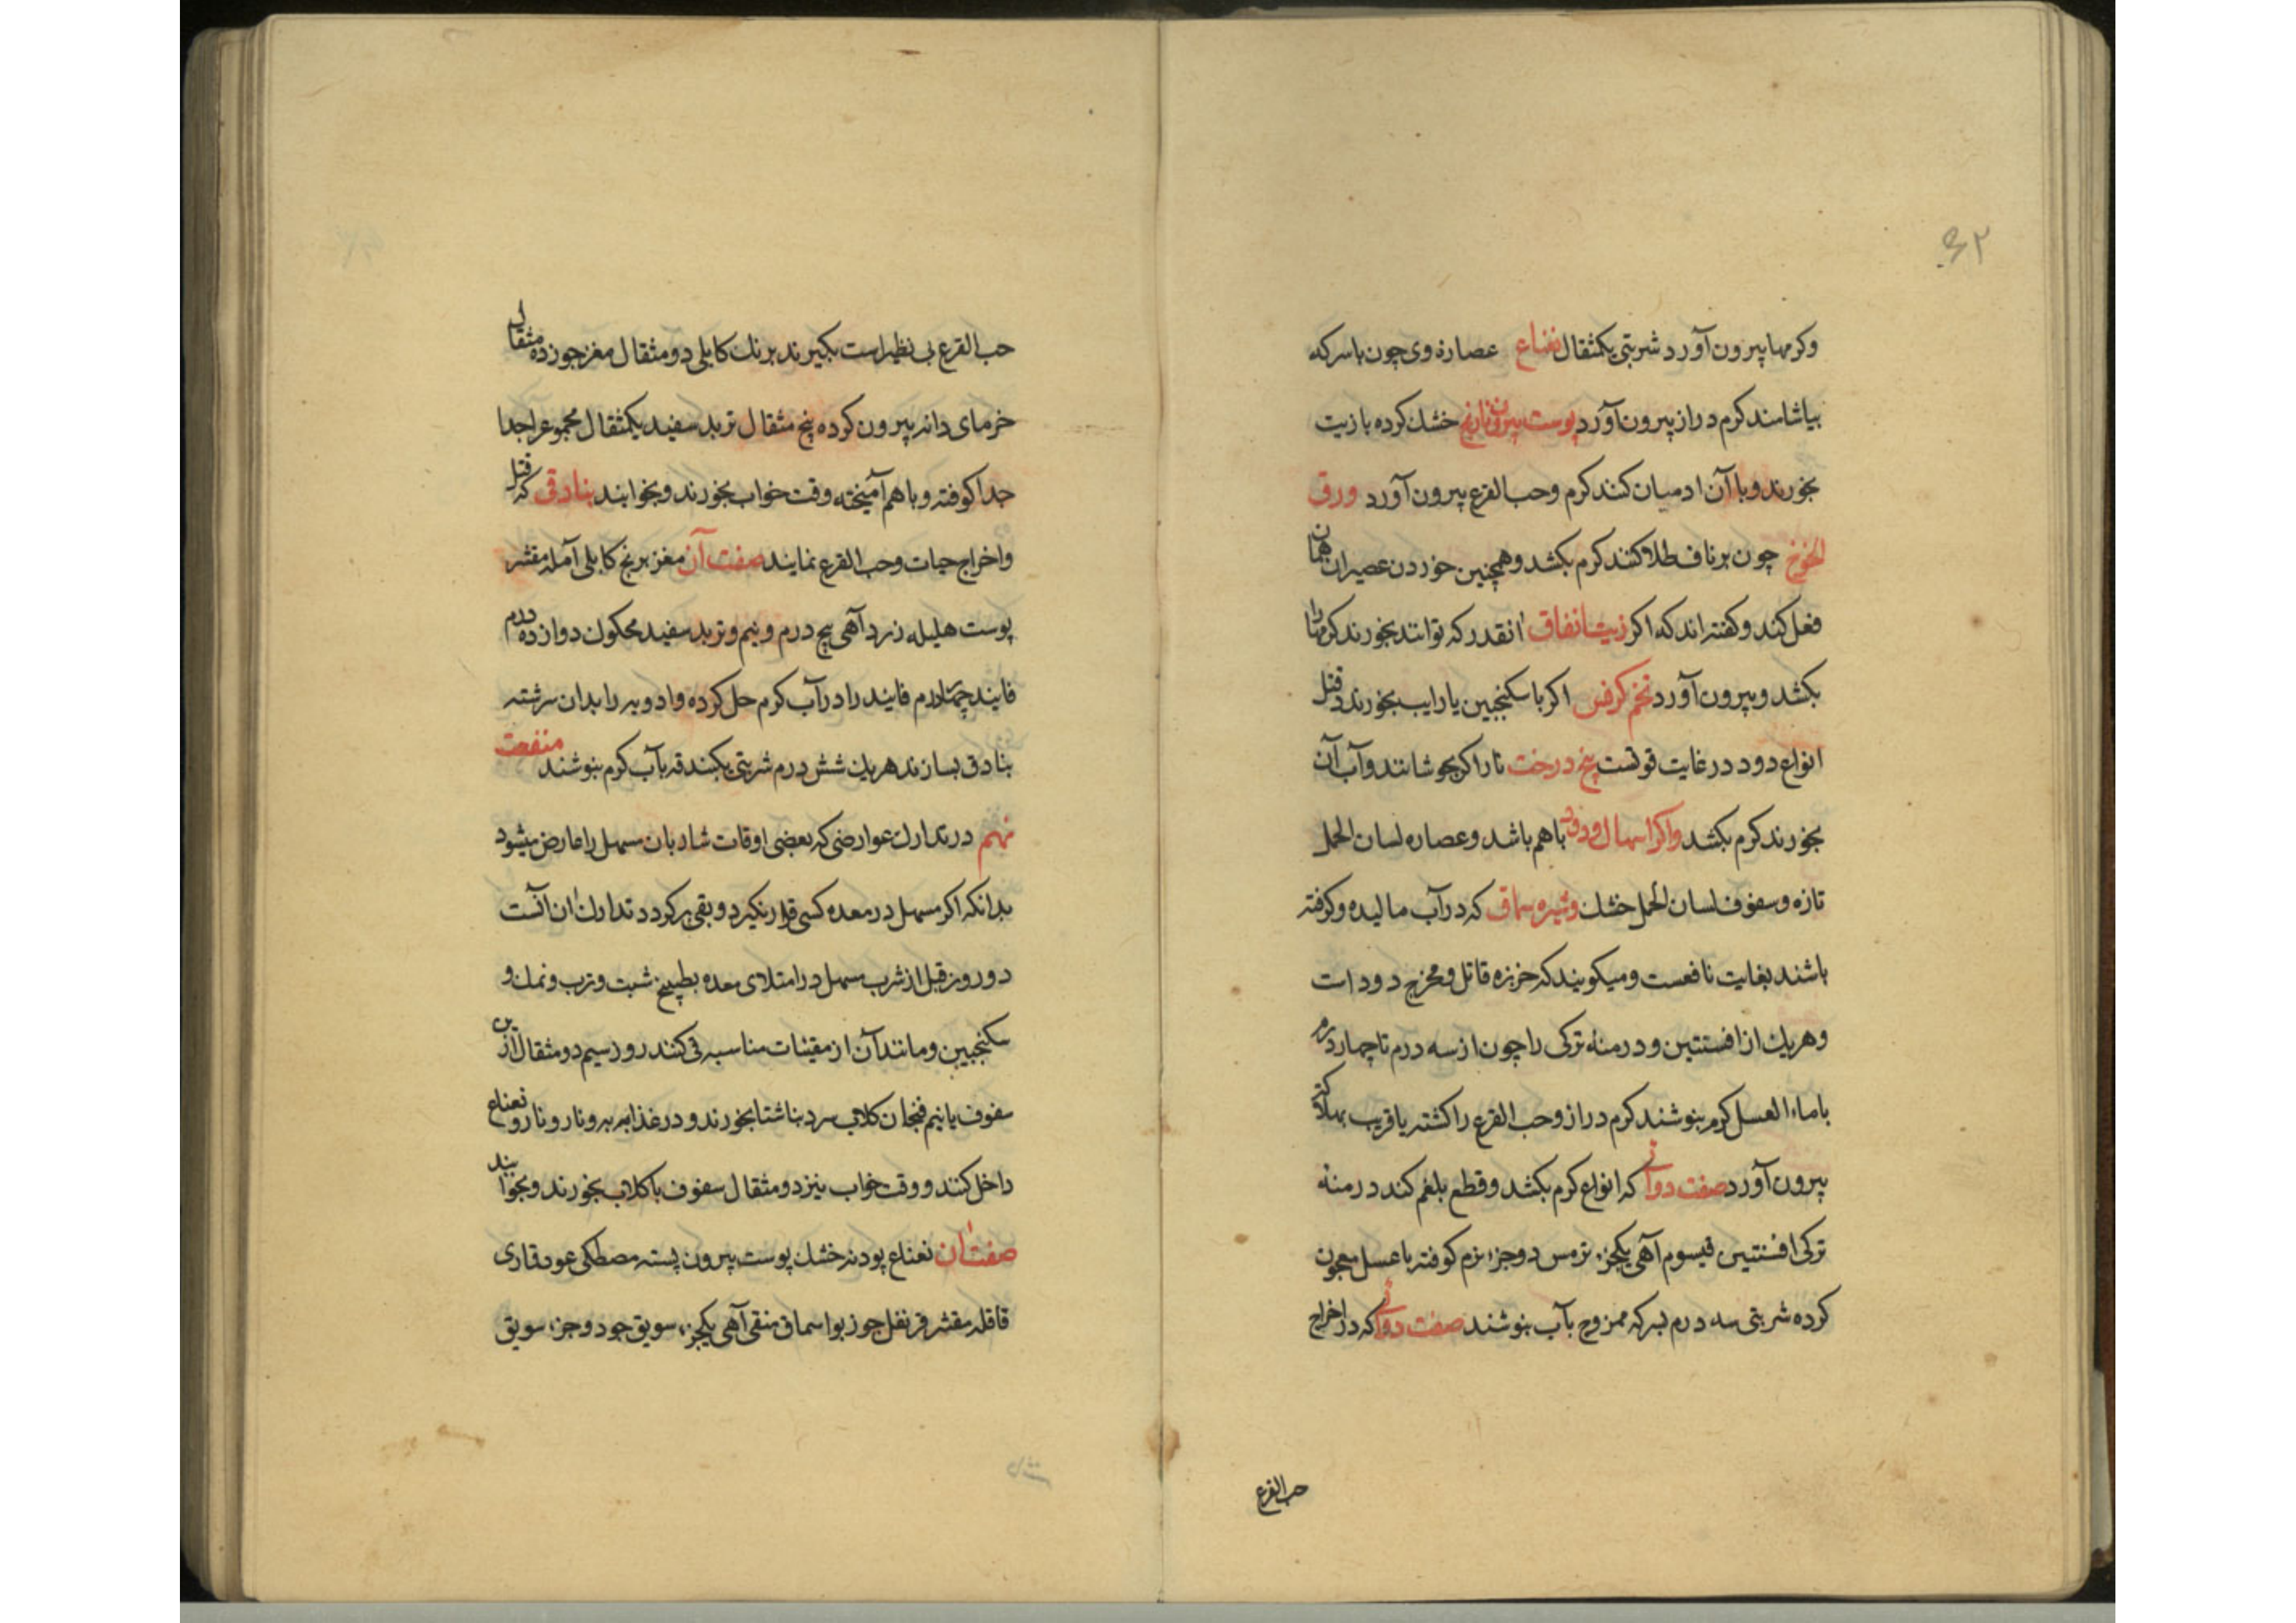 ۶۲
وکرمها بیرون آورد شربتی یکمثقال نعناع عصاره وی چون با سرکه
بیاشامند کرم دراز بیرون آورد پوست بیرونی نارنج خشک کرده با زیت
بخورند و با آن ادمیان کنند کرم وحب القرع بیرون آورد ورق
الخوخ چون بر ناف طلا کنند کرم بکشد وهمچنین خوردن عصیر ان همان
فعل کند وکفته اند که اکر زیت انفاق انقدر که توانند بخورند کرمها را
بکشد وبیرون آورد تخم کرفس اکر با سکنجبین یا رایب بخورند در قتل
انواع دود در غایت قوتست بیخ درخت نار اکر بجوشانند وآب آن
بخورند کرم بکشد واکر اسهال ودود باهم باشد وعصاره لسان الحمل
تازه وسفوف لسان الحمل خشک وشیره سماق که در آب مالیده وکوفته
باشند بغایت نافعست ومیکویند که خربزه قاتل ومخرج دود است
وهریک از افسنتین ودرمنه ترکی را چون از سه درم تا چهار درم
با ماء العسل کرم بنوشند کرم دراز وحب القرع را کشته یا قریب بهلاکت
بیرون آورد صفت دوائی که انواع کرم بکشد وقطع بلغم کند درمنه
ترکی افسنتین قیسوم آهی یکجزء ترمس دو جزء نرم کوفته با عسل معجون
کرده شربتی سه درم بسرکه ممزوج بآب بنوشند صفت دوائی که در اخراج
حب القرع
حب القرع بی نظیر است بکیرند برنک کابلی دو مثقال مغز جوز ده مثقال
خرمای دانه بیرون کرده پنج مثقال تربد سفید یکمثقال مجموع را جدا
جدا کوفته وباهم آمیخته وقت خواب بخورند وبخوابند بنادقی که قتل
واخراج حیات وحب القرع نمایند صفت آن مغز برنج کابلی آمله مقشر
پوست هلیله زرد آهی پنج درم ونیم وتربد سفید محکوک دوازده درم
فایند چهار درم فایند را در آب کرم حل کرده وادویه را بدان سرشته
بنادق بسازند هریک شش درم شربتی یکبندقه بآب کرم بنوشند منفعت
نهم در تدارک عوارضی که بعضی اوقات شاربان مسهل را عارض میشود
بدانکه اکر مسهل در معده کسی قرار نکیرد وبقی برکردد تدارک ان آنست
دو روز قبل از شرب مسهل در امتلای معده بطبیخ شبت وترب ونمک و
سکنجبین ومانند آن از مقیئات مناسبه قی کنند روز سیم دو مثقال ازین
سفوف با نیم فنجان کلاب سرد بناشتا بخورند ودر غذا به ونار ونعناع
داخل کنند ووقت خواب نیز دو مثقال سفوف با کلاب بخورند وبخوابند
صفت ان نعناع پودنه خشک پوست بیرون پسته مصطکی عود قاری
قاقله مقشر قرنفل جوز بوا سماق منقی آهی یکجزء سویق جو دو جزء سویق